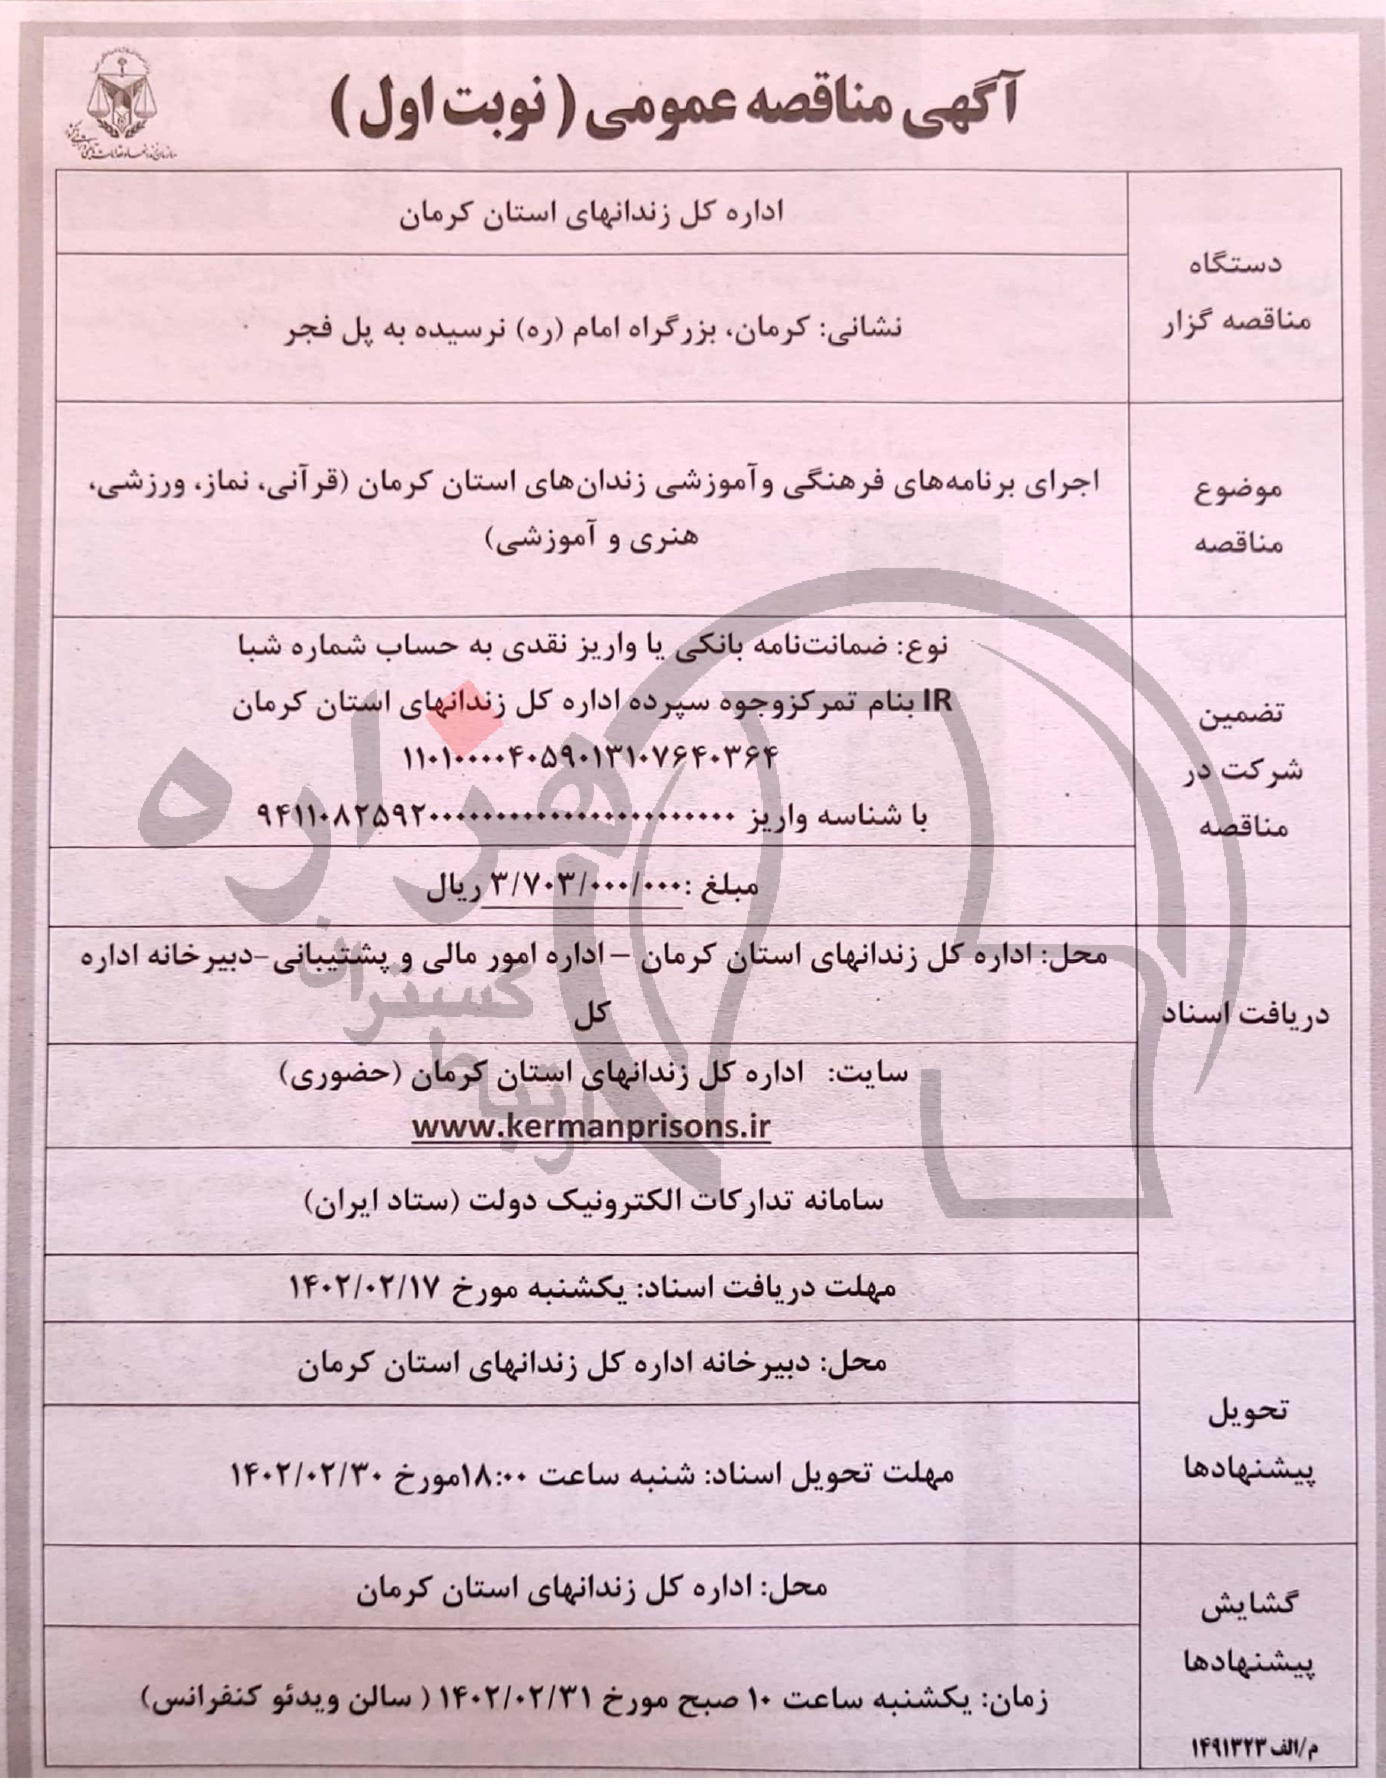 آگهی مناقصه عمومی (نوبت اول)
دستگاه
مناقصه گزار
اداره کل زندانهای استان کرمان
نشانی: کرمان، بزرگراه امام (ره) نرسیده به پل فجر
موضوع
مناقصه
اجرای برنامه‌های فرهنگی وآموزشی زندان‌های استان کرمان (قرآنی، نماز، ورزشی،
هنری و آموزشی)
تضمین
شرکت در
مناقصه
نوع: ضمانت‌نامه بانکی یا واریز نقدی به حساب شماره شبا
IR بنام تمرکزوجوه سپرده اداره کل زندانهای استان کرمان
۱۱۰۱۰۰۰۰۴۰۵۹۰۱۳۱۰۷۶۴۰۳۶۴
با شناسه واریز
مبلغ :۳/۷۰۳/۰۰۰/۰۰۰ ریال
دریافت اسناد
محل: اداره کل زندانهای استان کرمان – اداره امور مالی و پشتیبانی-دبیرخانه اداره
کل
سایت: اداره کل زندانهای استان کرمان (حضوری)
www.kermanprisons.ir
سامانه تدارکات الکترونیک دولت (ستاد ایران)
مهلت دریافت اسناد: یکشنبه مورخ ۱۴۰۲/۰۲/۱۷
تحویل
پیشنهادها
محل: دبیرخانه اداره کل زندانهای استان کرمان
مهلت تحویل اسناد: شنبه ساعت ۱۸:۰۰مورخ ۱۴۰۲/۰۲/۳۰
گشایش
پیشنهادها
محل: اداره کل زندانهای استان کرمان
زمان: یکشنبه ساعت ۱۰ صبح مورخ ۱۴۰۲/۰۲/۳۱ ( سالن ویدئو کنفرانس)
م/الف ۱۴۹۱۳۲۳
هزاره
گستران
ارتباط